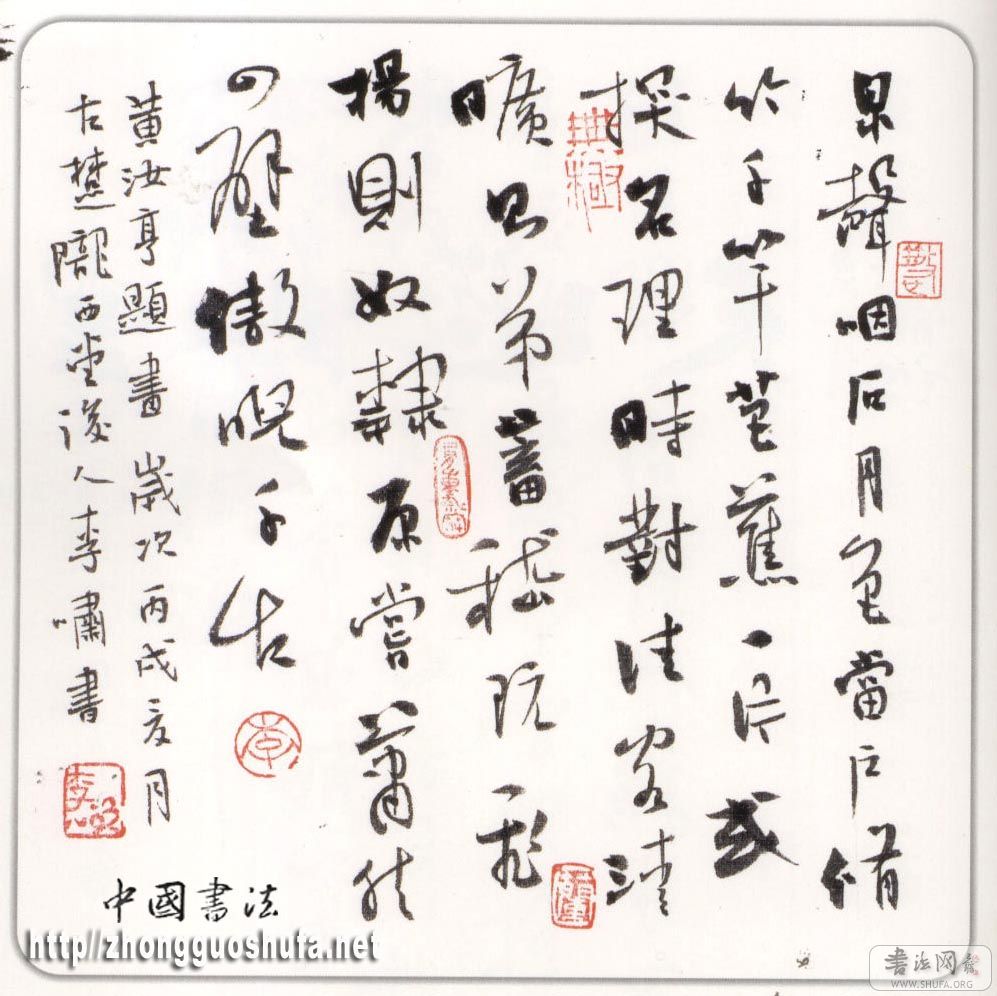 泉聲咽石月色當户脩
竹千竿芭蕉一片或
探名理時對佳客清
曠則弟蓄嵇阮飛
揚則奴隸原嘗蕭然
四壁傲睨千古
黄汝亨題書 歲次丙戌夏月
古樊隴西堂後人李嘯書
中國書法
http://zhongguoshufa.net
書法网
WWW.SHUFA.ORG